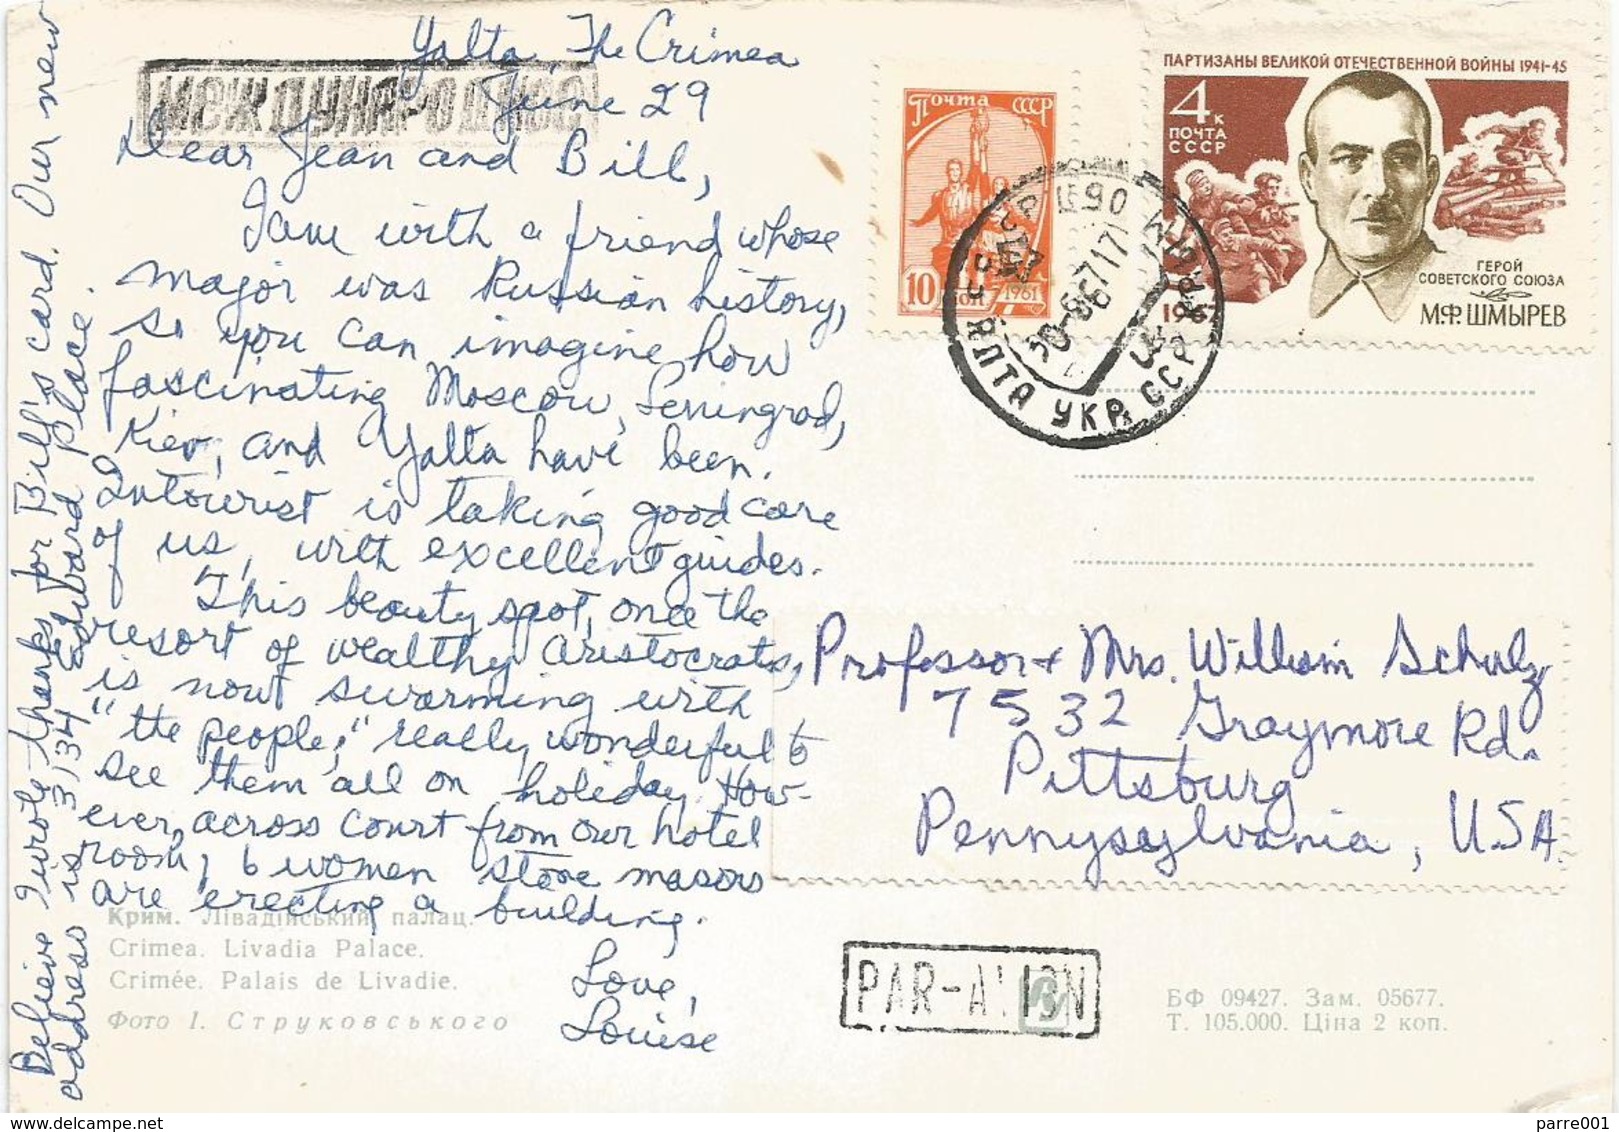 Yalta, The Crimea
June 29
МЕЖДУНАРОДНОЕ
Dear Jean and Bill,
I am with a friend whose
major was Russian history,
so you can imagine how
fascinating Moscow, Leningrad,
Kiev, and Yalta have been.
Intourist is taking good care
of us, with excellent guides.
This beauty spot, once the
resort of wealthy aristocrats,
is now swarming with
"the people," really wonderful to
see them all on holiday. How-
ever, across court from our hotel
room, 6 women stone masons
are erecting a building.
Love,
Louise
Believe I wrote thanks for Bill's card. Our new
address is 3134 Edward place.
Крим. Лівадійський палац.
Crimea. Livadia Palace.
Crimée. Palais de Livadie.
Фото І. Струковського
Почта СССР
10 коп. 1961
ПАРТИЗАНЫ ВЕЛИКОЙ ОТЕЧЕСТВЕННОЙ ВОЙНЫ 1941-45
4 к
ПОЧТА
СССР
ГЕРОЙ
СОВЕТСКОГО СОЮЗА
М.Ф. ШМЫРЕВ
1967
ЯЛТА УКР. ССР
Professor + Mrs. William Schulz
7532 Graymore Rd.
Pittsburg
Pennysylvania, U.S.A.
PAR-AVION
БФ 09427. Зам. 05677.
Т. 105.000. Ціна 2 коп.
parre001